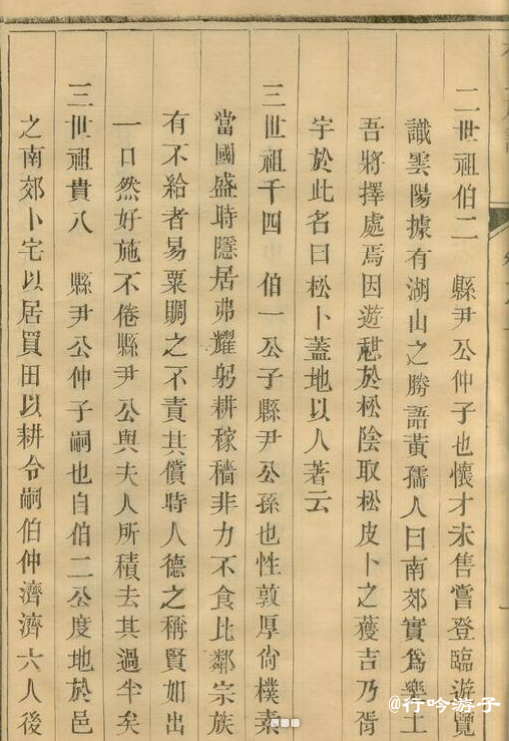 二世祖伯二　縣尹公仲子也懷才未售嘗登臨遊覽
識雲陽據有湖山之勝語黃孺人曰南郊實爲樂土
吾將擇處焉因遊憇於松陰取松皮卜之獲吉乃胥
宇於此名曰松卜蓋地以人著云
三世祖千四　伯一公子縣尹公孫也性敦厚尙樸素
當國盛時隱居弗耀躬耕稼穡非力不食比鄰宗族
有不給者易粟賙之不責其償時人德之稱賢如出
一口然好施不倦縣尹公與夫人所積去其過半矣
三世祖貴八　縣尹公仲子嗣也自伯二公度地於邑
之南郊卜宅以居買田以耕令嗣伯仲濟濟六人後
@行吟游子